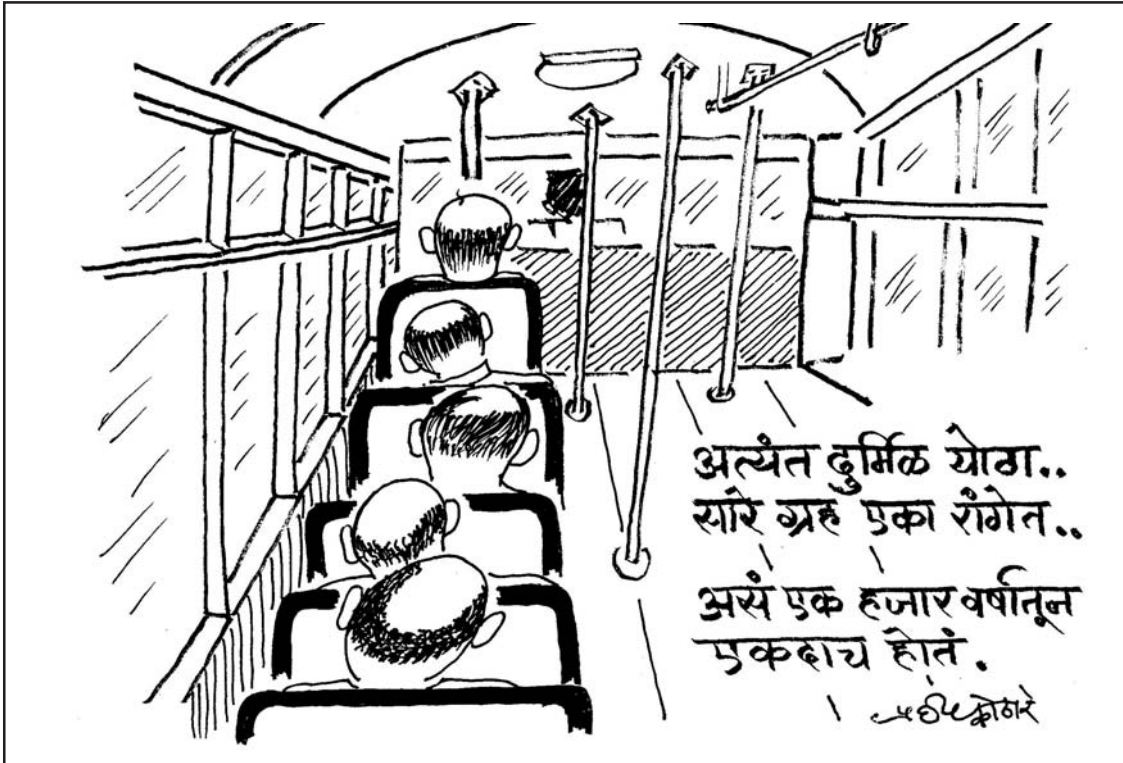 अत्यंत दुर्मिळ योग..
सारे ग्रह एका रांगेत..
असं एक हजार वर्षातून
एकदाच होतं.